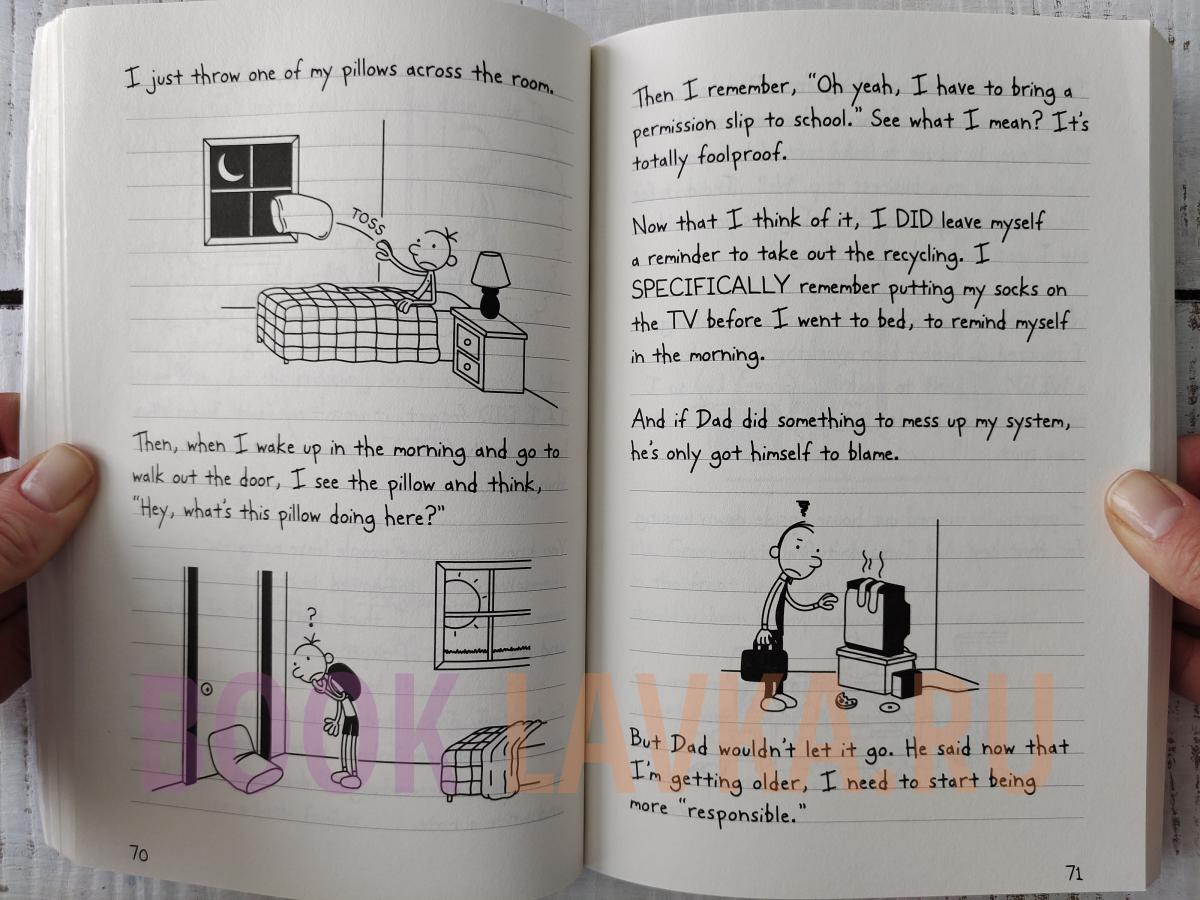 I just throw one of my pillows across the room.
TOSS
Then, when I wake up in the morning and go to
walk out the door, I see the pillow and think,
"Hey, what's this pillow doing here?"
?
70
Then I remember, "Oh yeah, I have to bring a
permission slip to school." See what I mean? It's
totally foolproof.
Now that I think of it, I DID leave myself
a reminder to take out the recycling. I
SPECIFICALLY remember putting my socks on
the TV before I went to bed, to remind myself
in the morning.
And if Dad did something to mess up my system,
he's only got himself to blame.
But Dad wouldn't let it go. He said now that
I'm getting older, I need to start being
more "responsible."
71
BOOK-LAVKA.RU